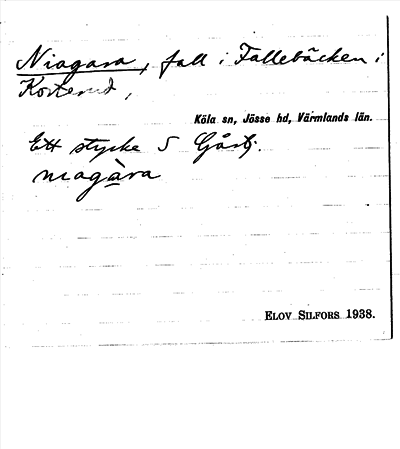 Niagara, fall i Fallebäcken i
Kosterud,
Köla sn, Jösse hd, Värmlands län.
Ett stycke S
niagàra
ELOV SILFORS 1938.